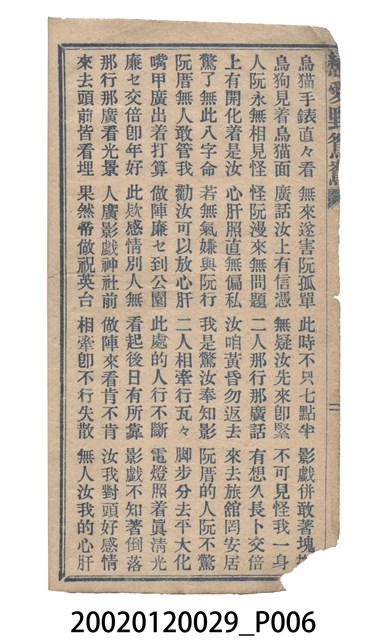 烏猫手錶直々看 無來遂害阮孤單 此時不只七點半 影戲併敢著塊
烏狗見着烏猫面 廣話汝上有信憑 無疑汝先來卽緊 不可見怪我一身
人阮永無相見怪 怪阮漫來無問題 二人那行那廣話 有想久長卜交倍
上有開化着是汝 心肝照直無偏私 汝咱黃昏勿返去 來去旅舘罔安居
驚了無此八字命 若無氣嫌與阮行 我是驚汝奉知影 阮厝的人阮不驚
阮厝無人敢管我 勸汝可以放心肝 二人相牽行瓦々 脚步分去平大化
嘴甲廣出着打算 做陣廉セ到公園 此處的人行不斷 電燈照着眞淸光
廉セ交倍卽年好 此款感情別人無 看起後日有所靠 影戲不知著倒落
那行那廣看光景 人廣影戲神社前 做陣來看肯不肯 汝我對頭好感情
來去頭前皆看埋 果然帶做祝英台 相牽卽不行失散 無人汝我的心肝
二
20020120029_P006